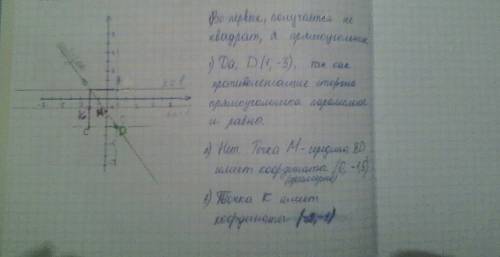 Во-первых, получается не
квадрат, а прямоугольник
1) Да, D(1, -3), так как
противолежащие стороны
прямоугольника параллельны
и равны.
2) Нет. Точка M - середина BD
имеет координаты (0, -1,5)
3) Точка K имеет
координаты
M
K
C
D